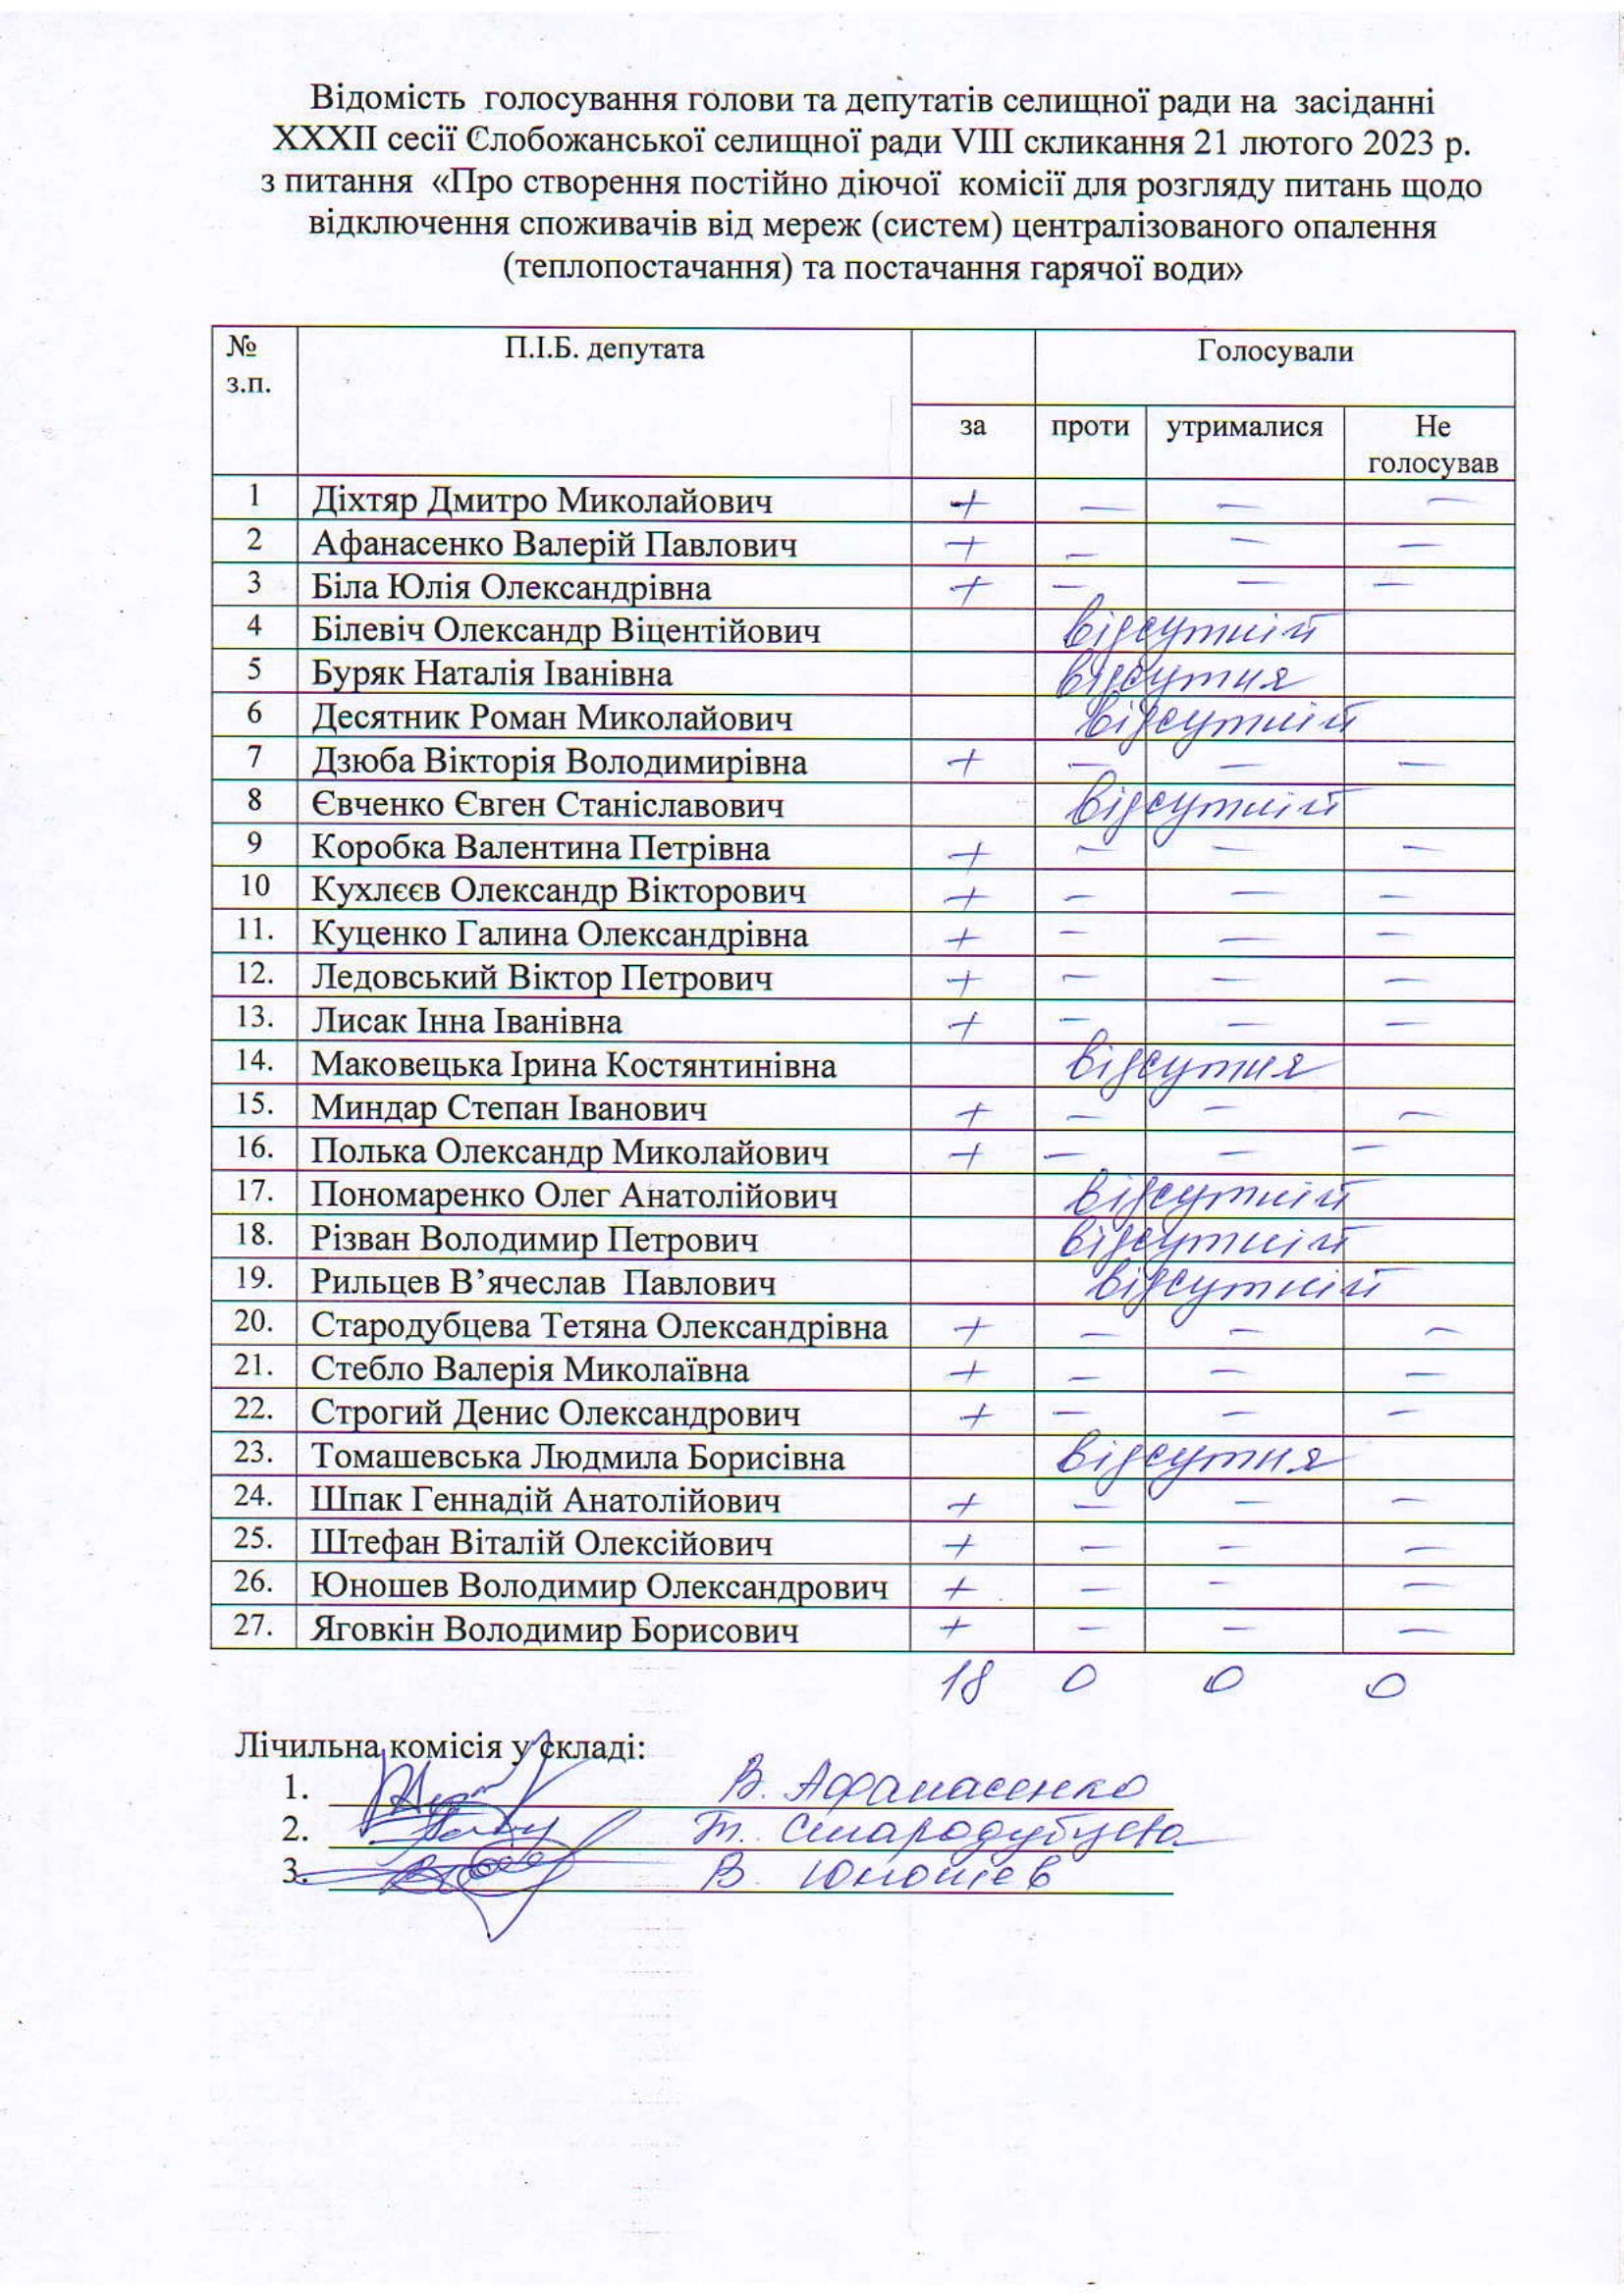 Відомість голосування голови та депутатів селищної ради на засіданні
XXXII сесії Слобожанської селищної ради VIII скликання 21 лютого 2023 р.
з питання «Про створення постійно діючої комісії для розгляду питань щодо
відключення споживачів від мереж (систем) централізованого опалення
(теплопостачання) та постачання гарячої води»
№ з.п. П.І.Б. депутата Голосували
за проти утрималися Не голосував
1 Діхтяр Дмитро Миколайович + — — —
2 Афанасенко Валерій Павлович + — — —
3 Біла Юлія Олександрівна + — — —
4 Білевіч Олександр Віцентійович відсутній
5 Буряк Наталія Іванівна відсутня
6 Десятник Роман Миколайович відсутній
7 Дзюба Вікторія Володимирівна + — — —
8 Євченко Євген Станіславович відсутній
9 Коробка Валентина Петрівна + — — —
10 Кухлєєв Олександр Вікторович + — — —
11. Куценко Галина Олександрівна + — — —
12. Ледовський Віктор Петрович + — — —
13. Лисак Інна Іванівна + — — —
14. Маковецька Ірина Костянтинівна відсутня
15. Миндар Степан Іванович + — — —
16. Полька Олександр Миколайович + — — —
17. Пономаренко Олег Анатолійович відсутній
18. Різван Володимир Петрович відсутній
19. Рильцев В’ячеслав Павлович відсутній
20. Стародубцева Тетяна Олександрівна + — — —
21. Стебло Валерія Миколаївна + — — —
22. Строгий Денис Олександрович + — — —
23. Томашевська Людмила Борисівна відсутня
24. Шпак Геннадій Анатолійович + — — —
25. Штефан Віталій Олексійович + — — —
26. Юношев Володимир Олександрович + — — —
27. Яговкін Володимир Борисович + — — —
18 0 0 0
Лічильна комісія у складі:
1. В. Афанасенко
2. Т. Стародубцева
3. В. Юношев